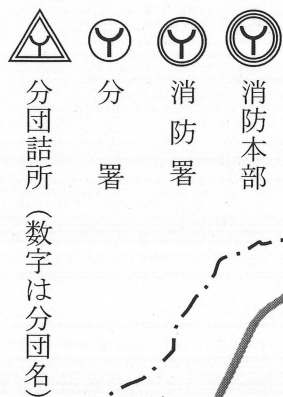 消防本部
消防署
分署
分団詰所（数字は分団名）